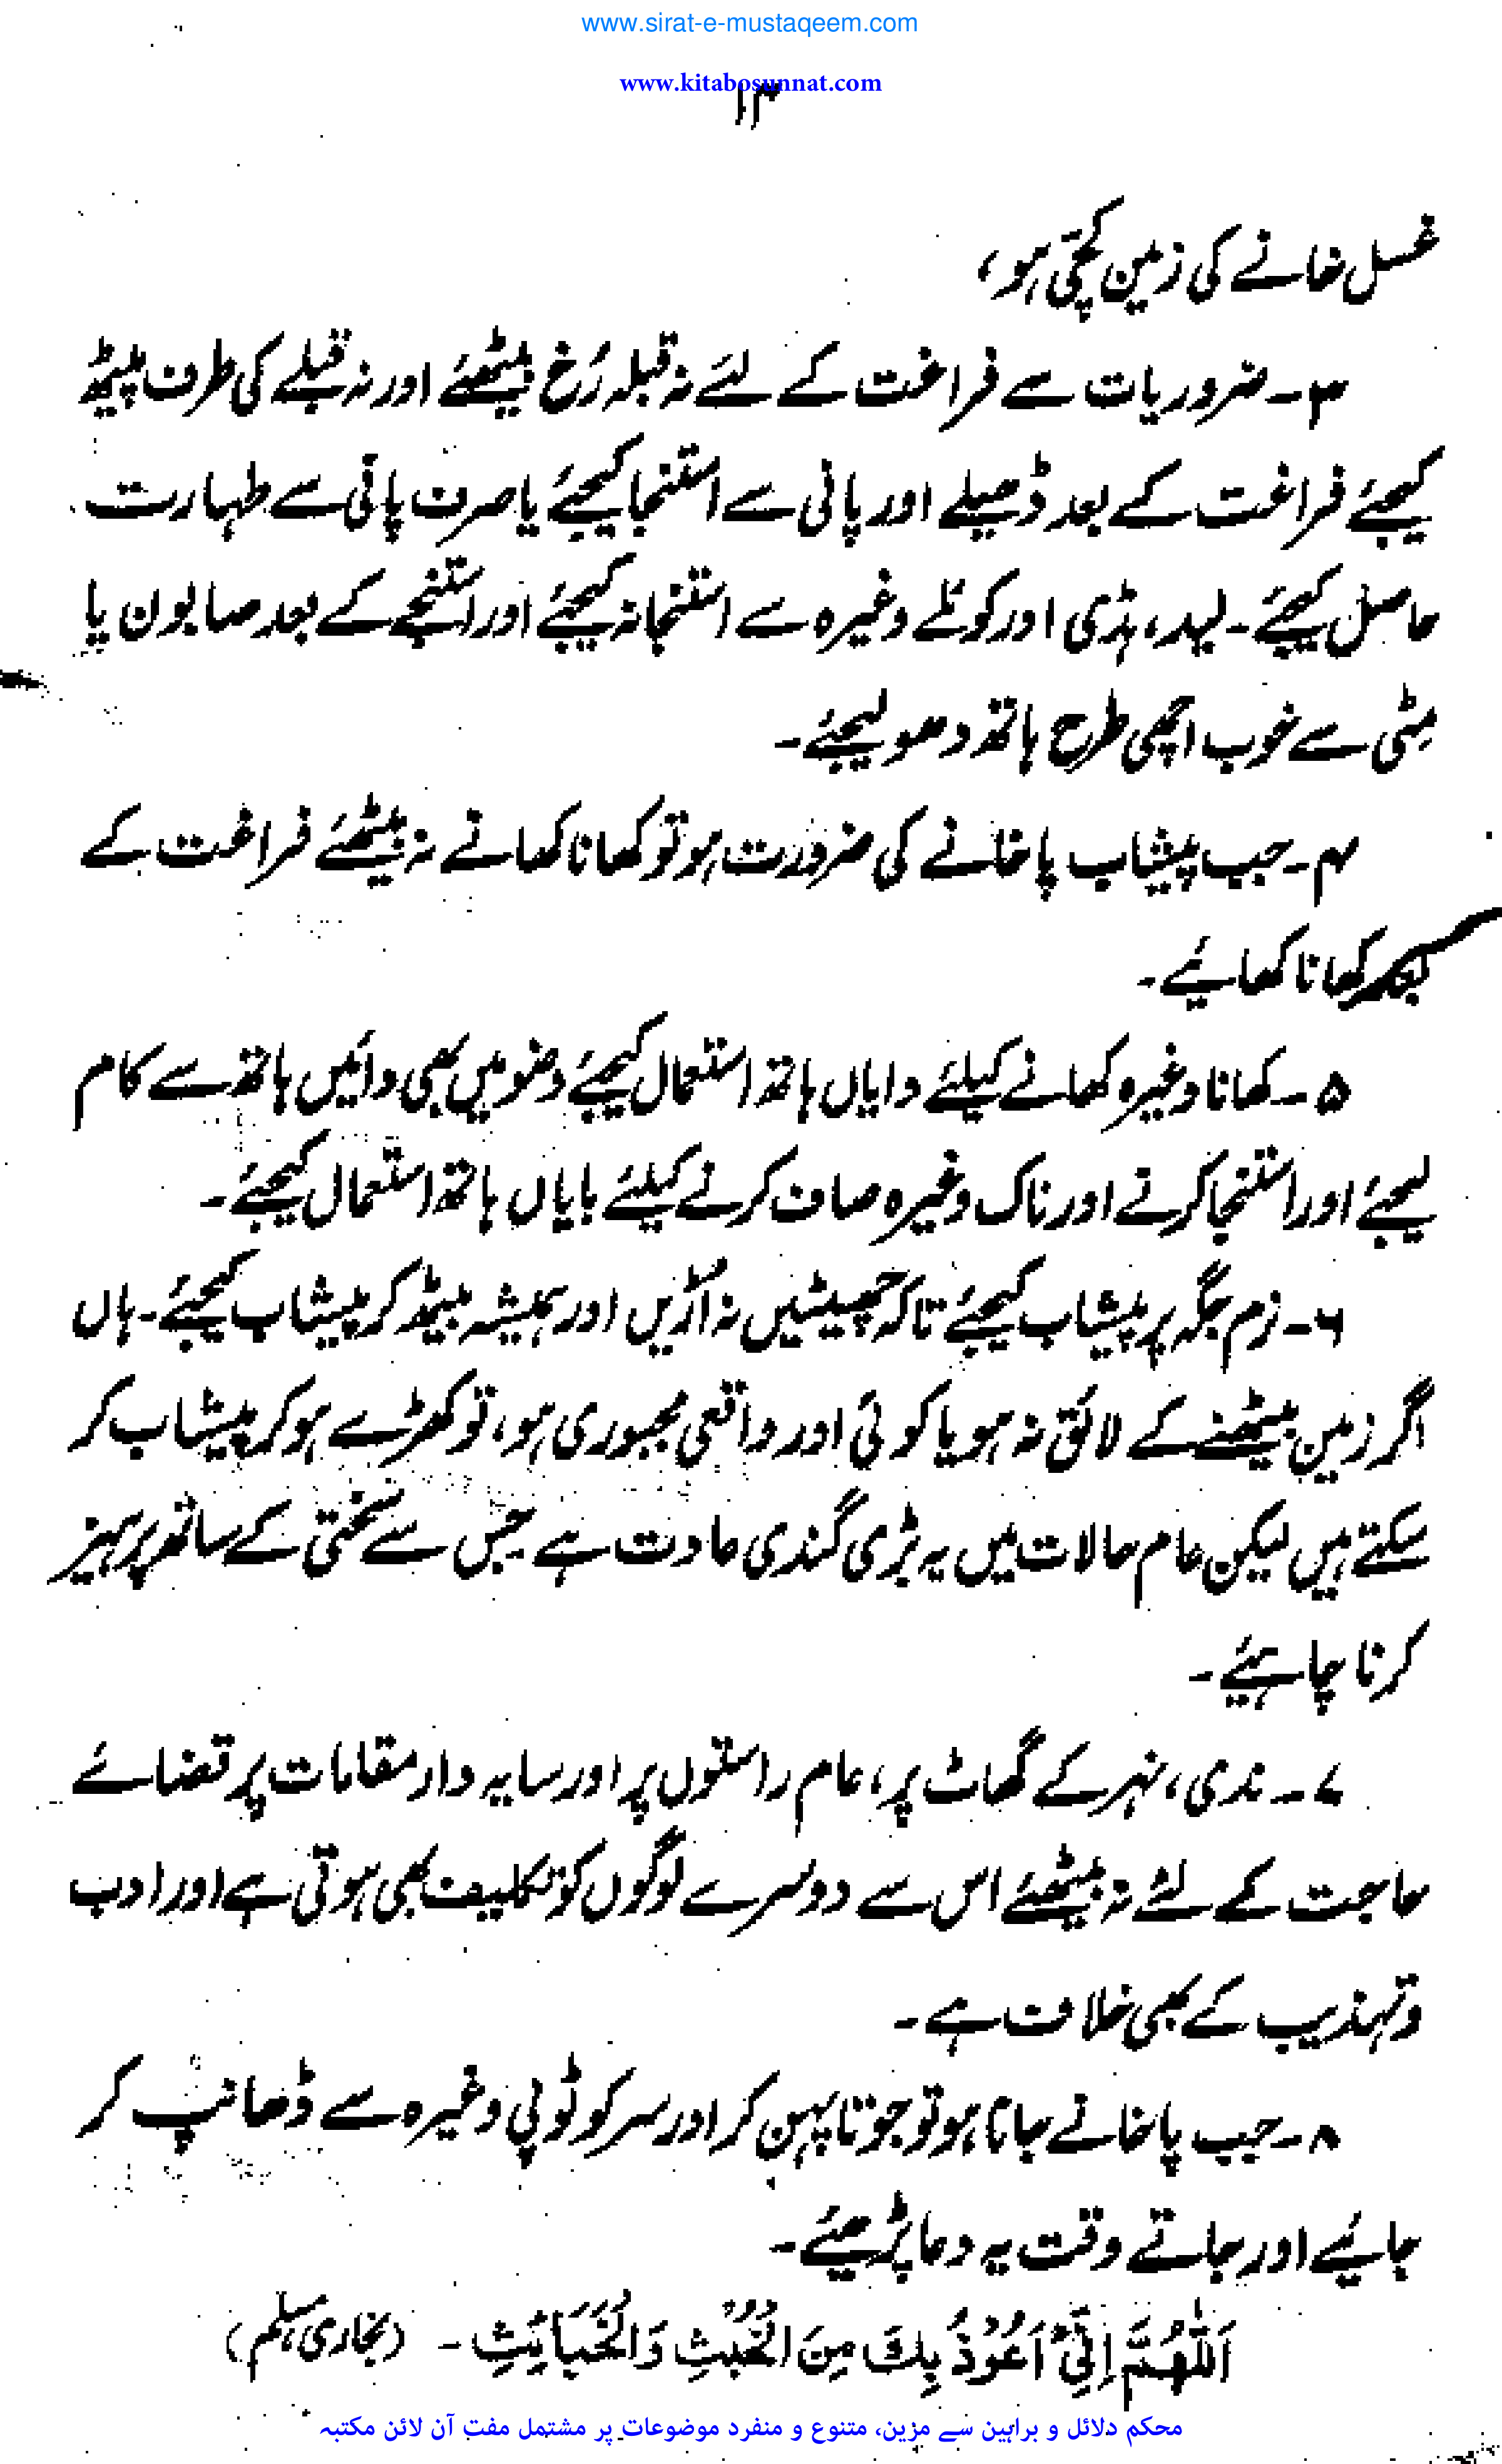 www.sirat-e-mustaqeem.com
www.kitabosunnat.com
۱۳
غسل خانے کی زمین کچّی ہو،
۳۔ ضروریات سے فراغت کے لئے نہ قبلہ رُخ بیٹھئے اور نہ قبلے کی طرف پیٹھ
کیجئے فراغت کے بعد ڈھیلے اور پانی سے استنجا کیجئے یا صرف پانی سے طہارت
حاصل کیجئے۔ لید، ہڈی اور کوئلے وغیرہ سے استنجا نہ کیجئے اور استنجے کے بعد صابون یا
مِٹی سے خوب اچھی طرح ہاتھ دھو لیجئے۔
۴۔ جب پیشاب پاخانے کی ضرورت ہو تو کھانا کھانے نہ بیٹھئے فراغت کے
بعد کھانا کھایئے۔
۵۔ کھانا وغیرہ کھانے کیلئے دایاں ہاتھ استعمال کیجئے وضو میں بھی دائیں ہاتھ سے کام
لیجئے اور استنجا کرنے اور ناک وغیرہ صاف کرنے کیلئے بایاں ہاتھ استعمال کیجئے۔
۶۔ نرم جگہ پر پیشاب کیجئے تاکہ چھینٹیں نہ اُڑیں اور ہمیشہ بیٹھ کر پیشاب کیجئے۔ ہاں
اگر زمین بیٹھنے کے لائق نہ ہو یا کوئی اور واقعی مجبوری ہو، تو کھڑے ہو کر پیشاب کر
سکتے ہیں لیکن عام حالات میں یہ بڑی گندی عادت ہے جس سے سختی کے ساتھ پرہیز
کرنا چاہیئے۔
۷۔ ندی، نہر کے گھاٹ پر، عام راستوں پر اور سایہ دار مقامات پر قضائے
حاجت کے لئے نہ بیٹھئے اس سے دوسرے لوگوں کو تکلیف بھی ہوتی ہے اور ادب
و تہذیب کے بھی خلاف ہے۔
۸۔ جب پاخانے جانا ہو تو جوتا پہن کر اور سر کو ٹوپی وغیرہ سے ڈھانپ کر
جایئے اور جاتے وقت یہ دعا پڑھیئے۔
اَللّٰھُمَّ اِنِّیْ اَعُوْذُ بِكَ مِنَ الْخُبُثِ وَالْخَبَائِثِ ۔ (بخاری، مسلم)
محکم دلائل و براہین سے مزین، متنوع و منفرد موضوعات پر مشتمل مفت آن لائن مکتبہ